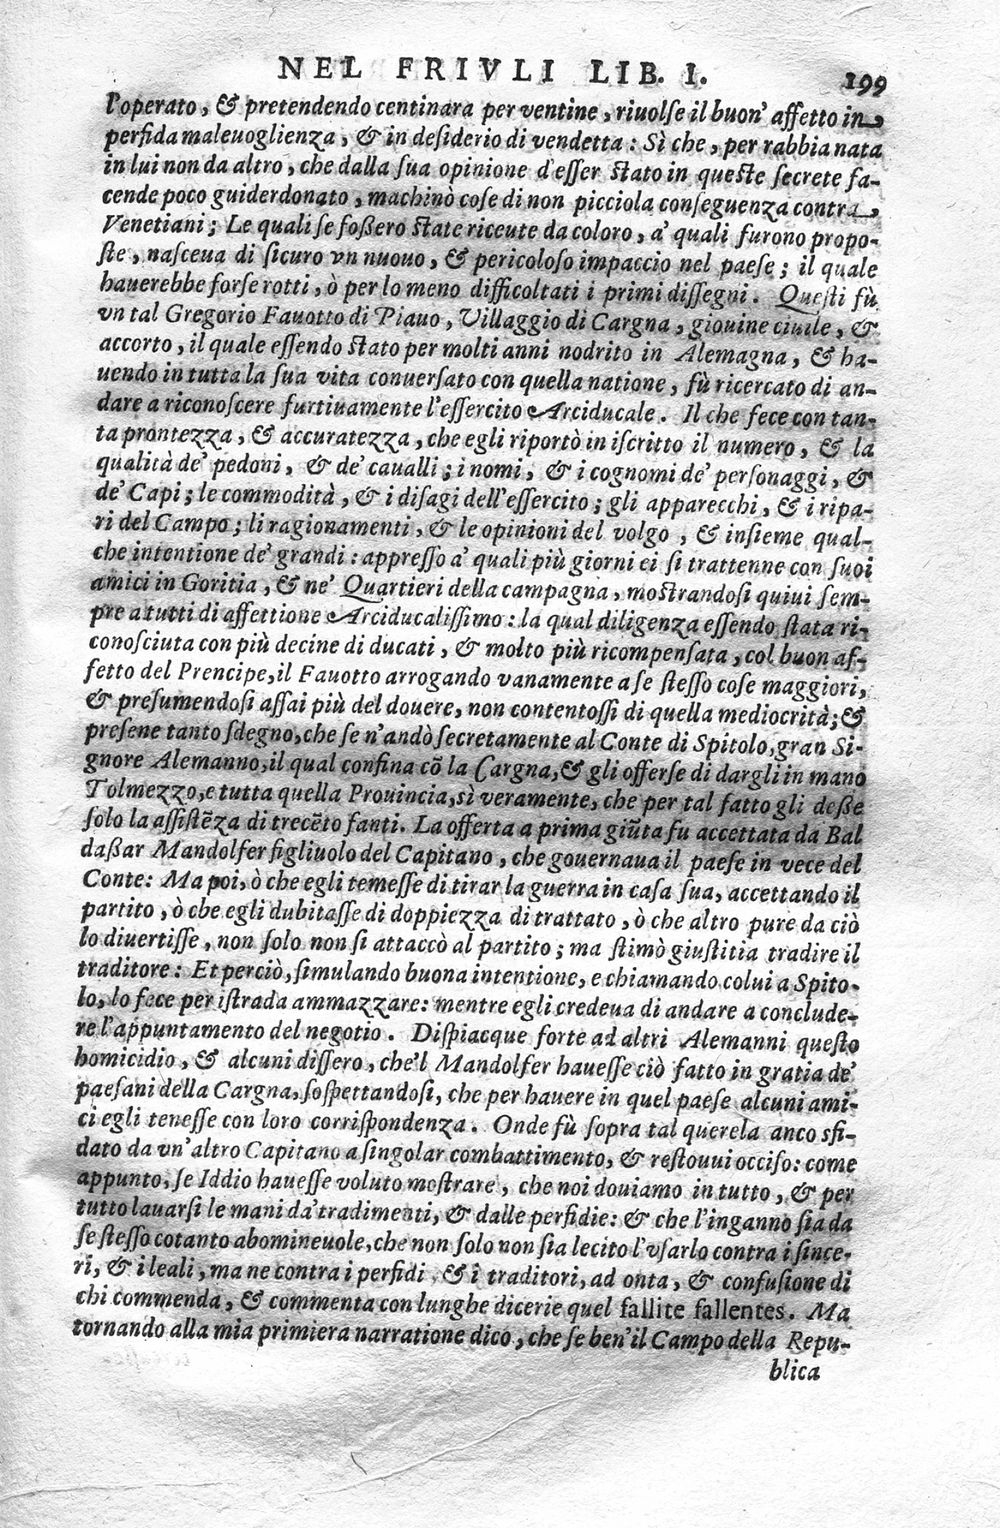 NEL FRIVLI LIB. I. 199
l'operato, & pretendendo centinara per ventine, riuolse il buon' affetto in
perfida maleuoglienza, & in desiderio di vendetta: Sì che, per rabbia nata
in lui non da altro, che dalla sua opinione d'esser stato in queste secrete fa-
cende poco guiderdonato, machinò cose di non picciola conseguenza contra
Venetiani; Le quali se foßero state riceute da coloro, a' quali furono propo-
ste, nasceua di sicuro vn nuouo, & pericoloso impaccio nel paese; il quale
hauerebbe forse rotti, ò per lo meno difficoltati i primi dissegni. Questi fù
vn tal Gregorio Fauotto di Piauo, Villaggio di Cargna, giouine ciuile, &
accorto, il quale essendo stato per molti anni nodrito in Alemagna, & ha-
uendo in tutta la sua vita conuersato con quella natione, fù ricercato di an-
dare a riconoscere furtiuamente l'essercito Arciducale. Il che fece con tan-
ta prontezza, & accuratezza, che egli riportò in iscritto il numero, & la
qualità de' pedoni, & de' caualli; i nomi, & i cognomi de' personaggi, &
de' Capi; le commodità, & i disagi dell'essercito; gli apparecchi, & i ripa-
ri del Campo; li ragionamenti, & le opinioni del volgo, & insieme qual-
che intentione de' grandi: appresso a' quali più giorni ei si trattenne con suoi
amici in Goritia, & ne' Quartieri della campagna, mostrandosi quiui sem-
pre a tutti di affettione Arciducalissimo: la qual diligenza essendo stata ri-
conosciuta con più decine di ducati, & molto più ricompensata, col buon af-
fetto del Prencipe, il Fauotto arrogando vanamente a se stesso cose maggiori,
& presumendosi assai più del douere, non contentossi di quella mediocrità; &
presene tanto sdegno, che se n'andò secretamente al Conte di Spitolo, gran Si-
gnore Alemanno, il qual confina cō la Cargna, & gli offerse di dargli in mano
Tolmezzo, e tutta quella Prouincia, sì veramente, che per tal fatto gli deße
solo la assistēza di trecēto fanti. La offerta a prima giūta fu accettata da Bal
daßar Mandolfer figliuolo del Capitano, che gouernaua il paese in vece del
Conte: Ma poi, ò che egli temesse di tirar la guerra in casa sua, accettando il
partito, ò che egli dubitasse di doppiezza di trattato, ò che altro pure da ciò
lo diuertisse, non solo non si attaccò al partito; ma stimò giustitia tradire il
traditore: Et perciò, simulando buona intentione, e chiamando colui a Spito-
lo, lo fece per istrada ammazzare: mentre egli credeua di andare a conclude-
re l'appuntamento del negotio. Dispiacque forte ad altri Alemanni questo
homicidio, & alcuni dissero, che'l Mandolfer hauesse ciò fatto in gratia de'
paesani della Cargna, sospettandosi, che per hauere in quel paese alcuni ami-
ci egli tenesse con loro corrispondenza. Onde fù sopra tal querela anco sfi-
dato da vn'altro Capitano a singolar combattimento, & restouui occiso: come
appunto, se Iddio hauesse voluto mostrare, che noi douiamo in tutto, & per
tutto lauarsi le mani da' tradimenti, & dalle perfidie: & che l'inganno sia da
se stesso cotanto abomineuole, che non solo non sia lecito l'vsarlo contra i since-
ri, & i leali, ma ne contra i perfidi, & i traditori, ad onta, & confusione di
chi commenda, & commenta con lunghe dicerie quel fallite fallentes. Ma
tornando alla mia primiera narratione dico, che se ben'il Campo della Repu-
blica